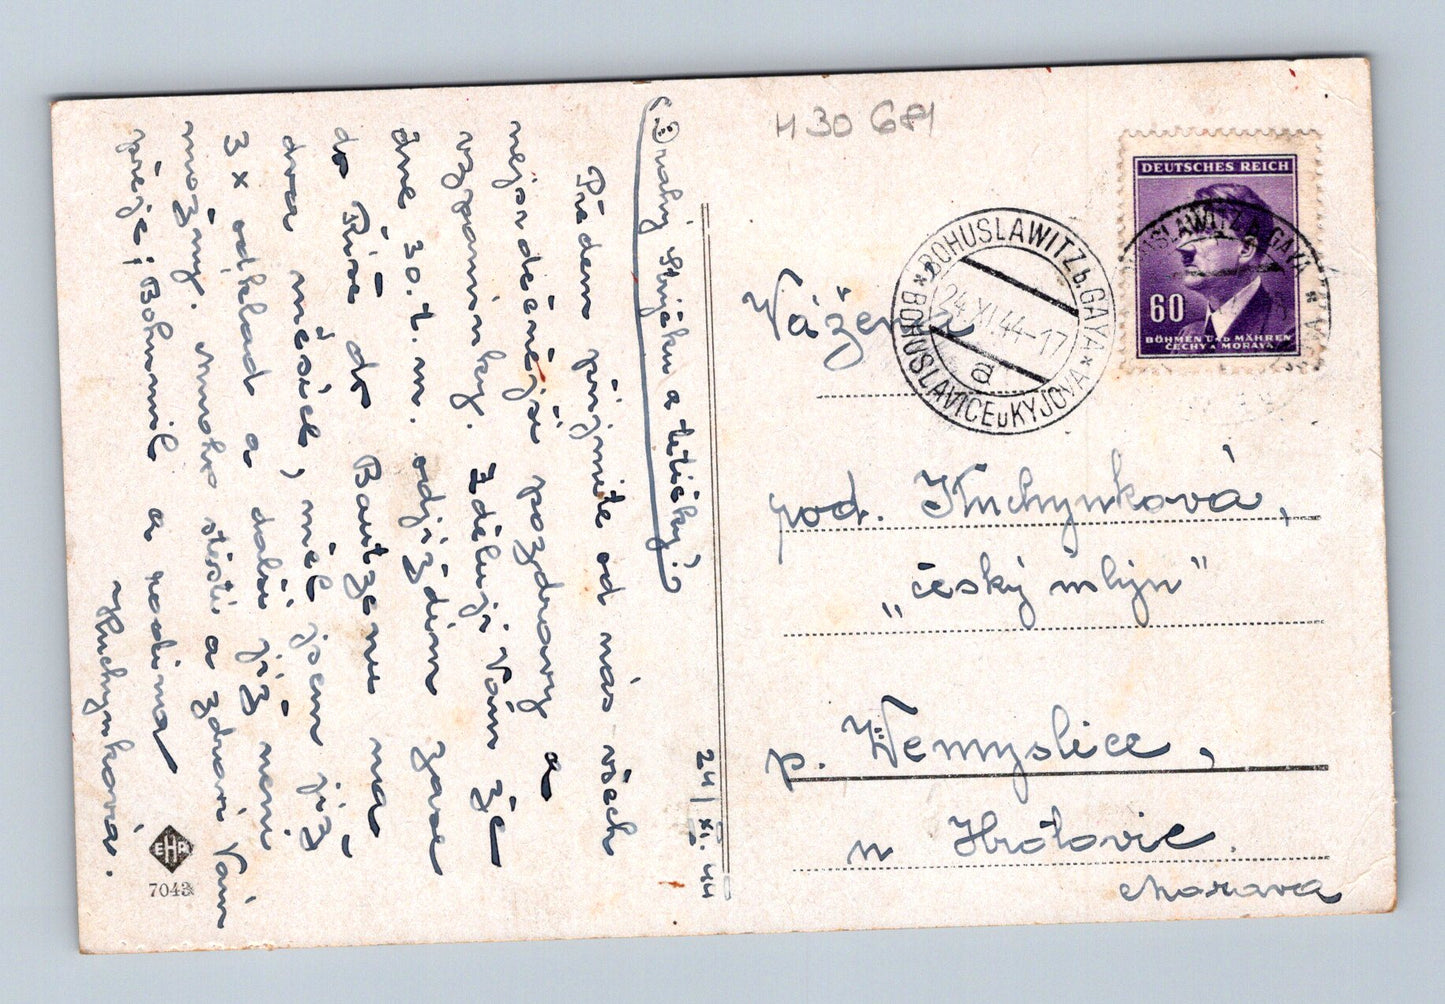 H30 681
DEUTSCHES REICH
60
BÖHMEN UND MÄHREN
ČECHY A MORAVA
BOHUSLAWITZ b. GAYA
24.XI.44-17
a
BOHUSLAVICE u KYJOVA
24/XI.44
Drahý Strýčku a tetičky,
Předem přijmite od nás všech
nejsrdečnější pozdravy a
vzpomínky. Zděluji Vám že
dne 30.t.m. odjíždím zase
do Říše do Bautzenu na
dva měsíce, měl jsem již
3x odklad a další již není
možný. Mnoho štěstí a zdraví Vám
přeje; Bohumil a rodina
Kuchynková.
Vážená
pod. Kuchynková,
„český mlýn"
p. Wemyslice,
u Hrotovic.
Morava
EHR
7043